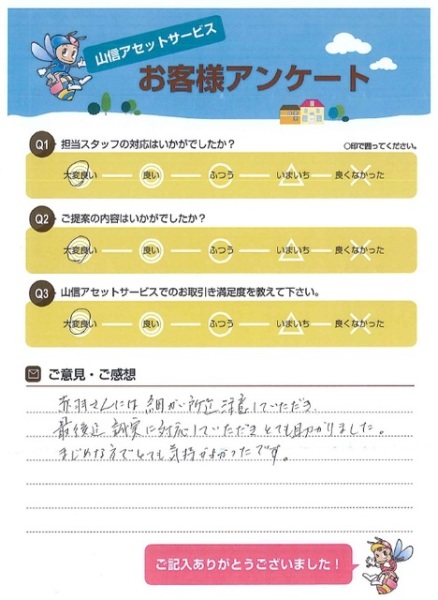 山信アセットサービス
お客様アンケート
Q1 担当スタッフの対応はいかがでしたか？ ○印で囲ってください。
大変良い 良い ふつう いまいち 良くなかった
Q2 ご提案の内容はいかがでしたか？
大変良い 良い ふつう いまいち 良くなかった
Q3 山信アセットサービスでのお取引き満足度を教えて下さい。
大変良い 良い ふつう いまいち 良くなかった
ご意見・ご感想
赤羽さんには細かい所迄注意していただき、
最後迄誠実に対応していただきとても助かりました。
まじめな方でとても気持がよかったです。
ご記入ありがとうございました！